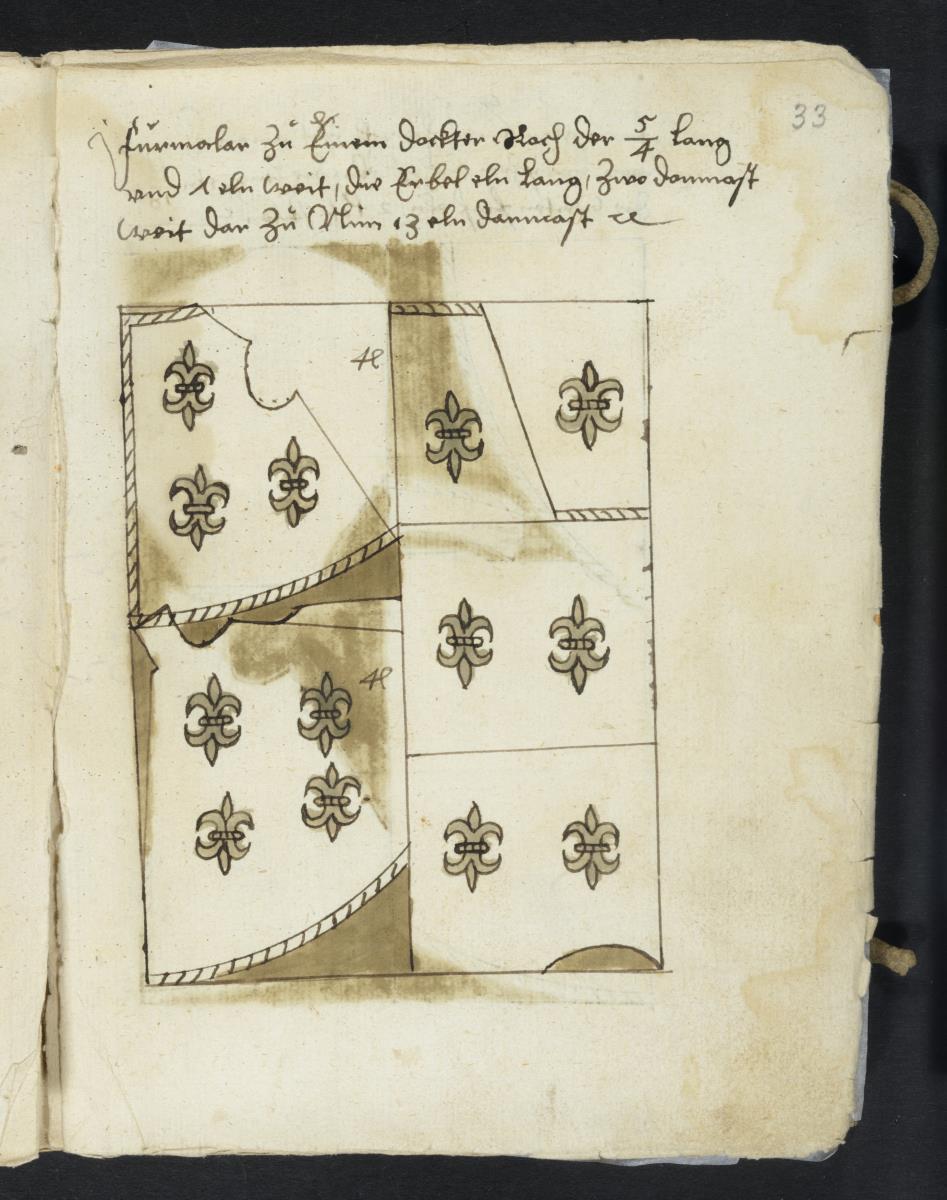 33
furmolar zů Einem dockter Rock der 5/4 lang
vnd 1 eln weit, die Erbel eln lang, zwo dammast
weit dar zů Nim 13 eln dammast
4e
4e